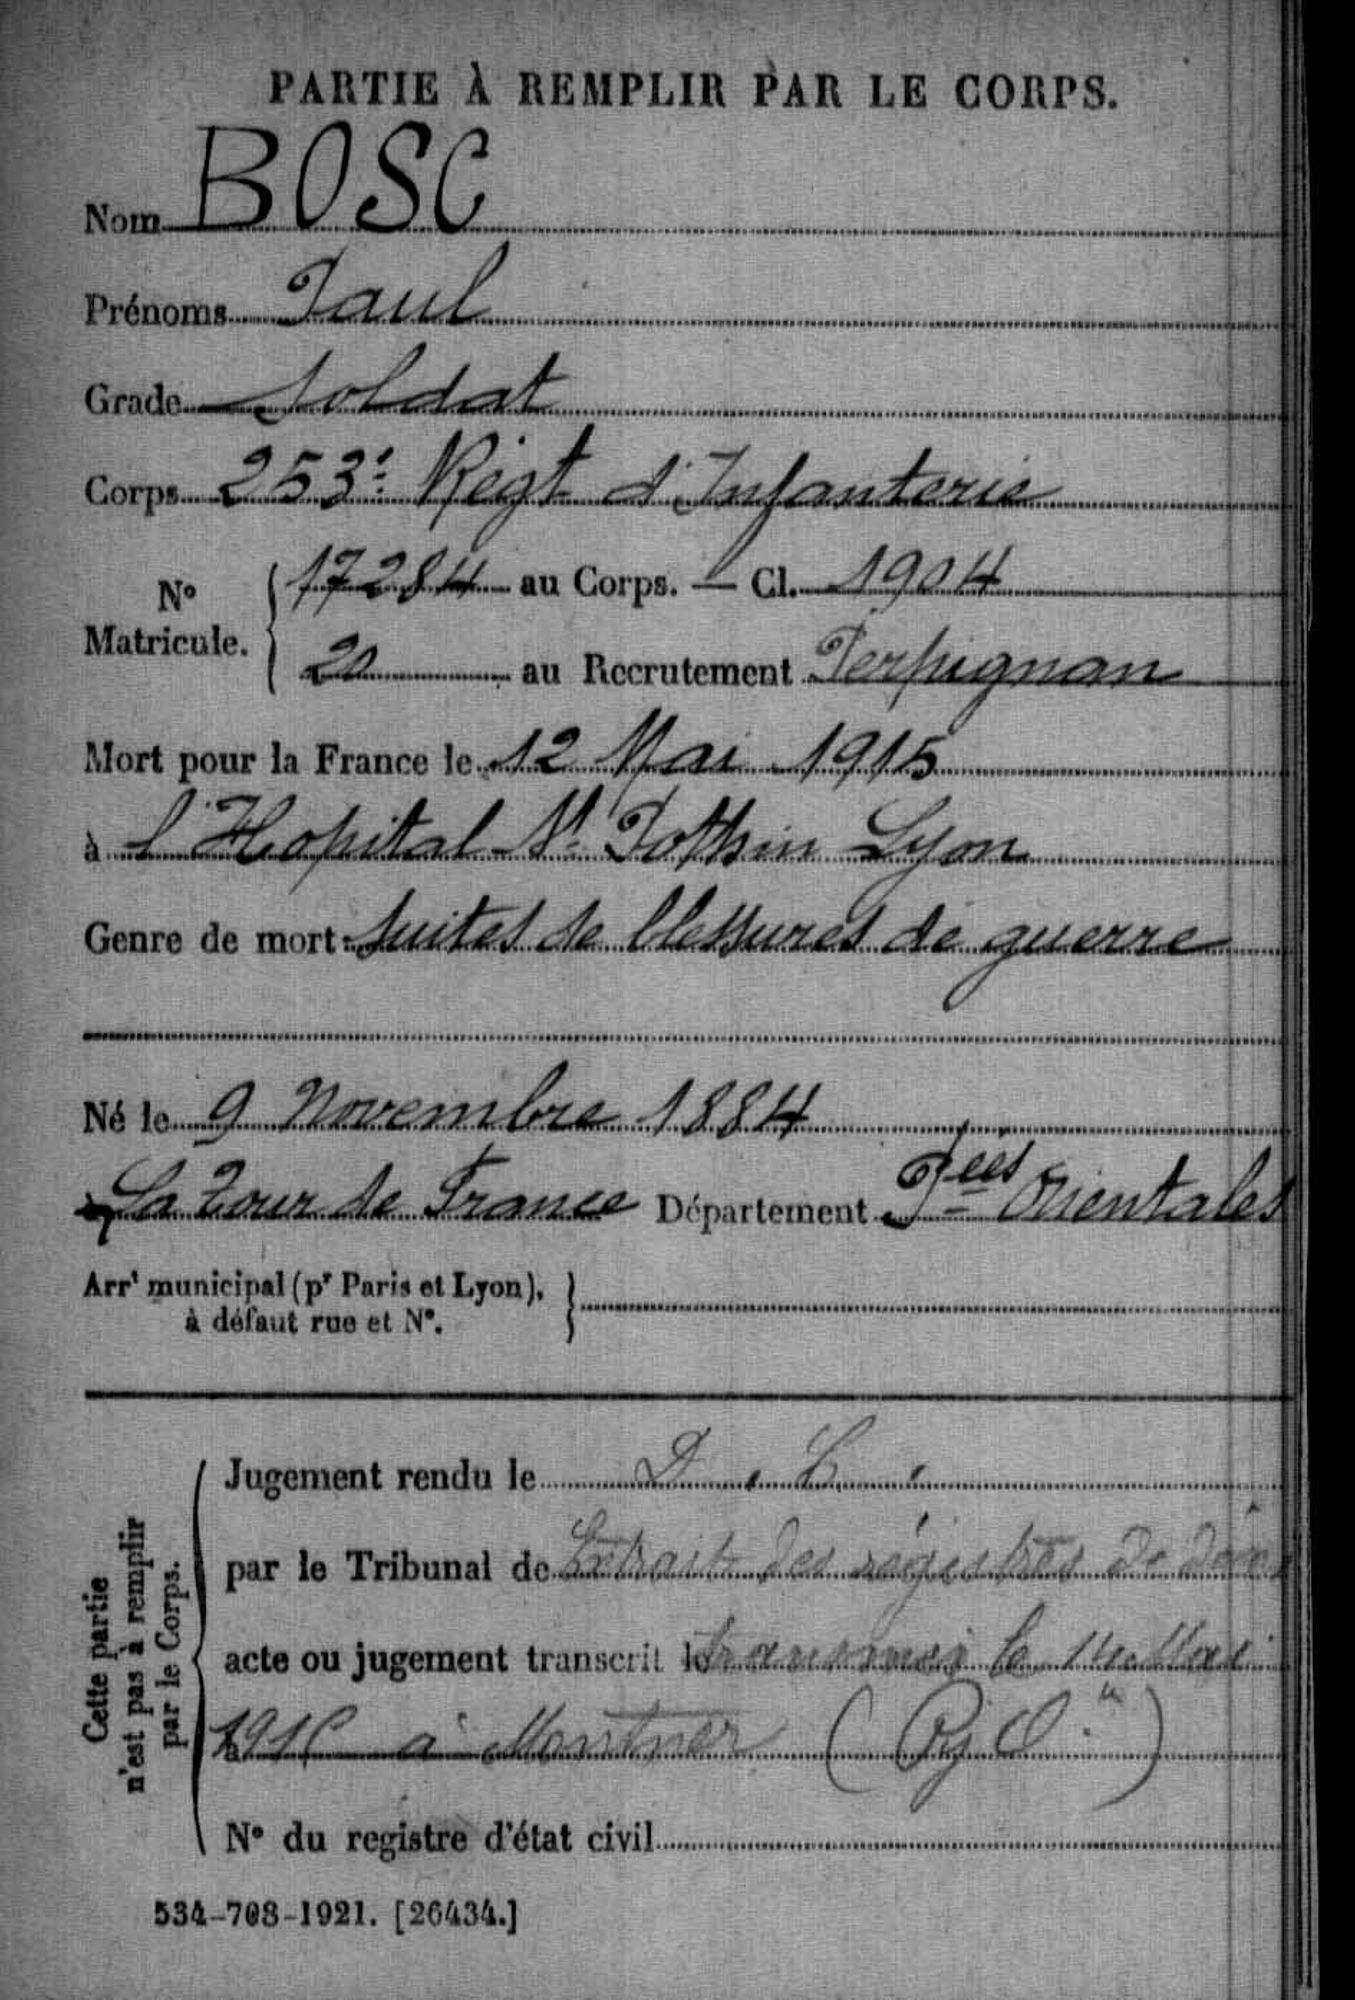 PARTIE À REMPLIR PAR LE CORPS.
Nom BOSC
Prénoms Paul
Grade Soldat
Corps 253e Régt d'Infanterie
No Matricule. { 17284 au Corps. — Cl. 1904
20 au Recrutement Perpignan
Mort pour la France le 12 Mai 1915
à l'Hopital St Pothin Lyon
Genre de mort suites de blessures de guerre
Né le 9 Novembre 1884
à La Tour de France Département Pees Orientales
Arrt municipal (pr Paris et Lyon), }
à défaut rue et No.
Cette partie
n'est pas à remplir
par le Corps.
Jugement rendu le D. C.
par le Tribunal de Extrait des registres de décès
acte ou jugement transcrit le transmis le 14 Mai
à a Montner (Py O.)
No du registre d'état civil
534-708-1921. [26434.]